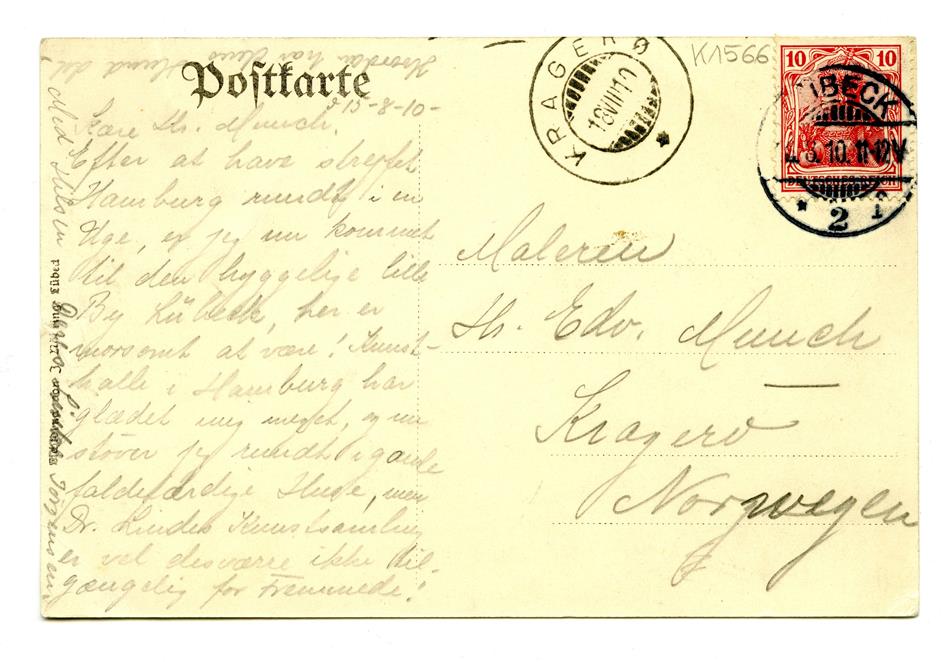 Postkarte
K1566
KRAGERØ
18 VIII 10
10 10
DEUTSCHES REICH
ÜBECK
10. 11-12 V
2
d 15-8-10-
Kære Hr. Munch.
Efter at have strejfet
Hamburg rundt i en
Uge, er jeg nu kommet
til den hyggelige lille
By Lübeck, her er
morsomt at være! Kunst-
halle i Hamburg har
glædet mig meget, og nu
støver jeg rundt i gamle
faldefærdige Huse, men
Dr. Lindes Kunstsamling
er vel desværre ikke til-
gængelig for Fremmede!
Hvordan har Deres Hund det
Med Hilsen
Jörgensen.
Lübeck
Maleren
Hr. Edv. Munch
Kragerø
Norwegen